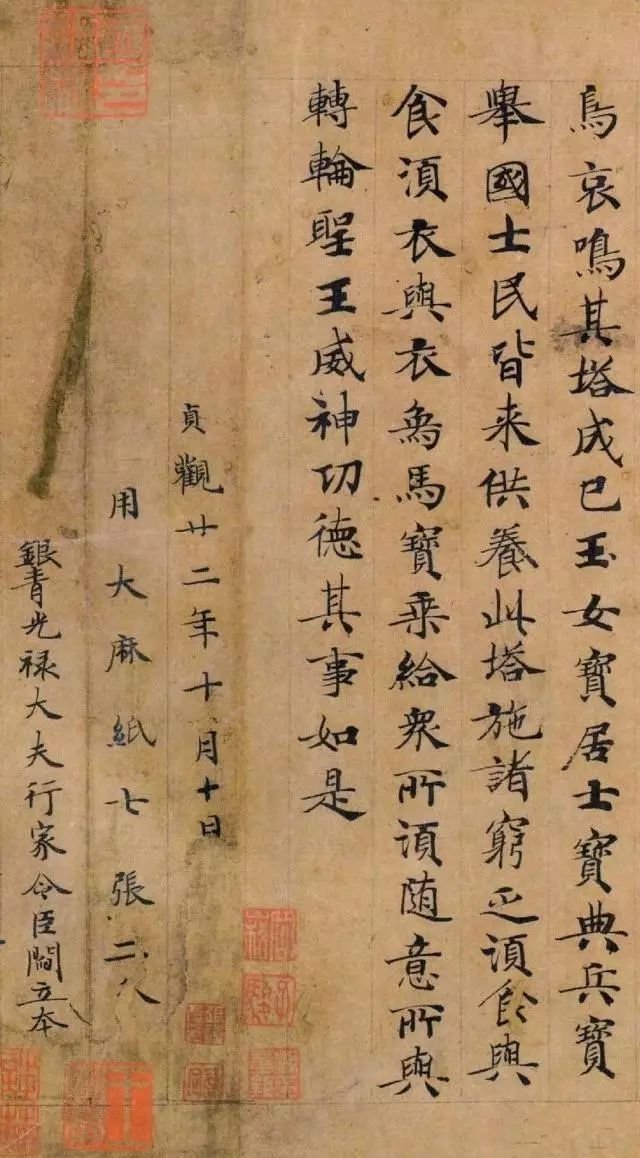 鳥哀鳴其塔成已玉女寶居士寶典兵寶
舉國士民皆来供養此塔施諸窮乏湏飯與
食湏衣與衣象馬寶乘給眾所湏随意所與
轉輪聖王威神功德其事如是
貞觀廿二年十月十日
用大麻紙七張二分
銀青光禄大夫行家令臣閻立本